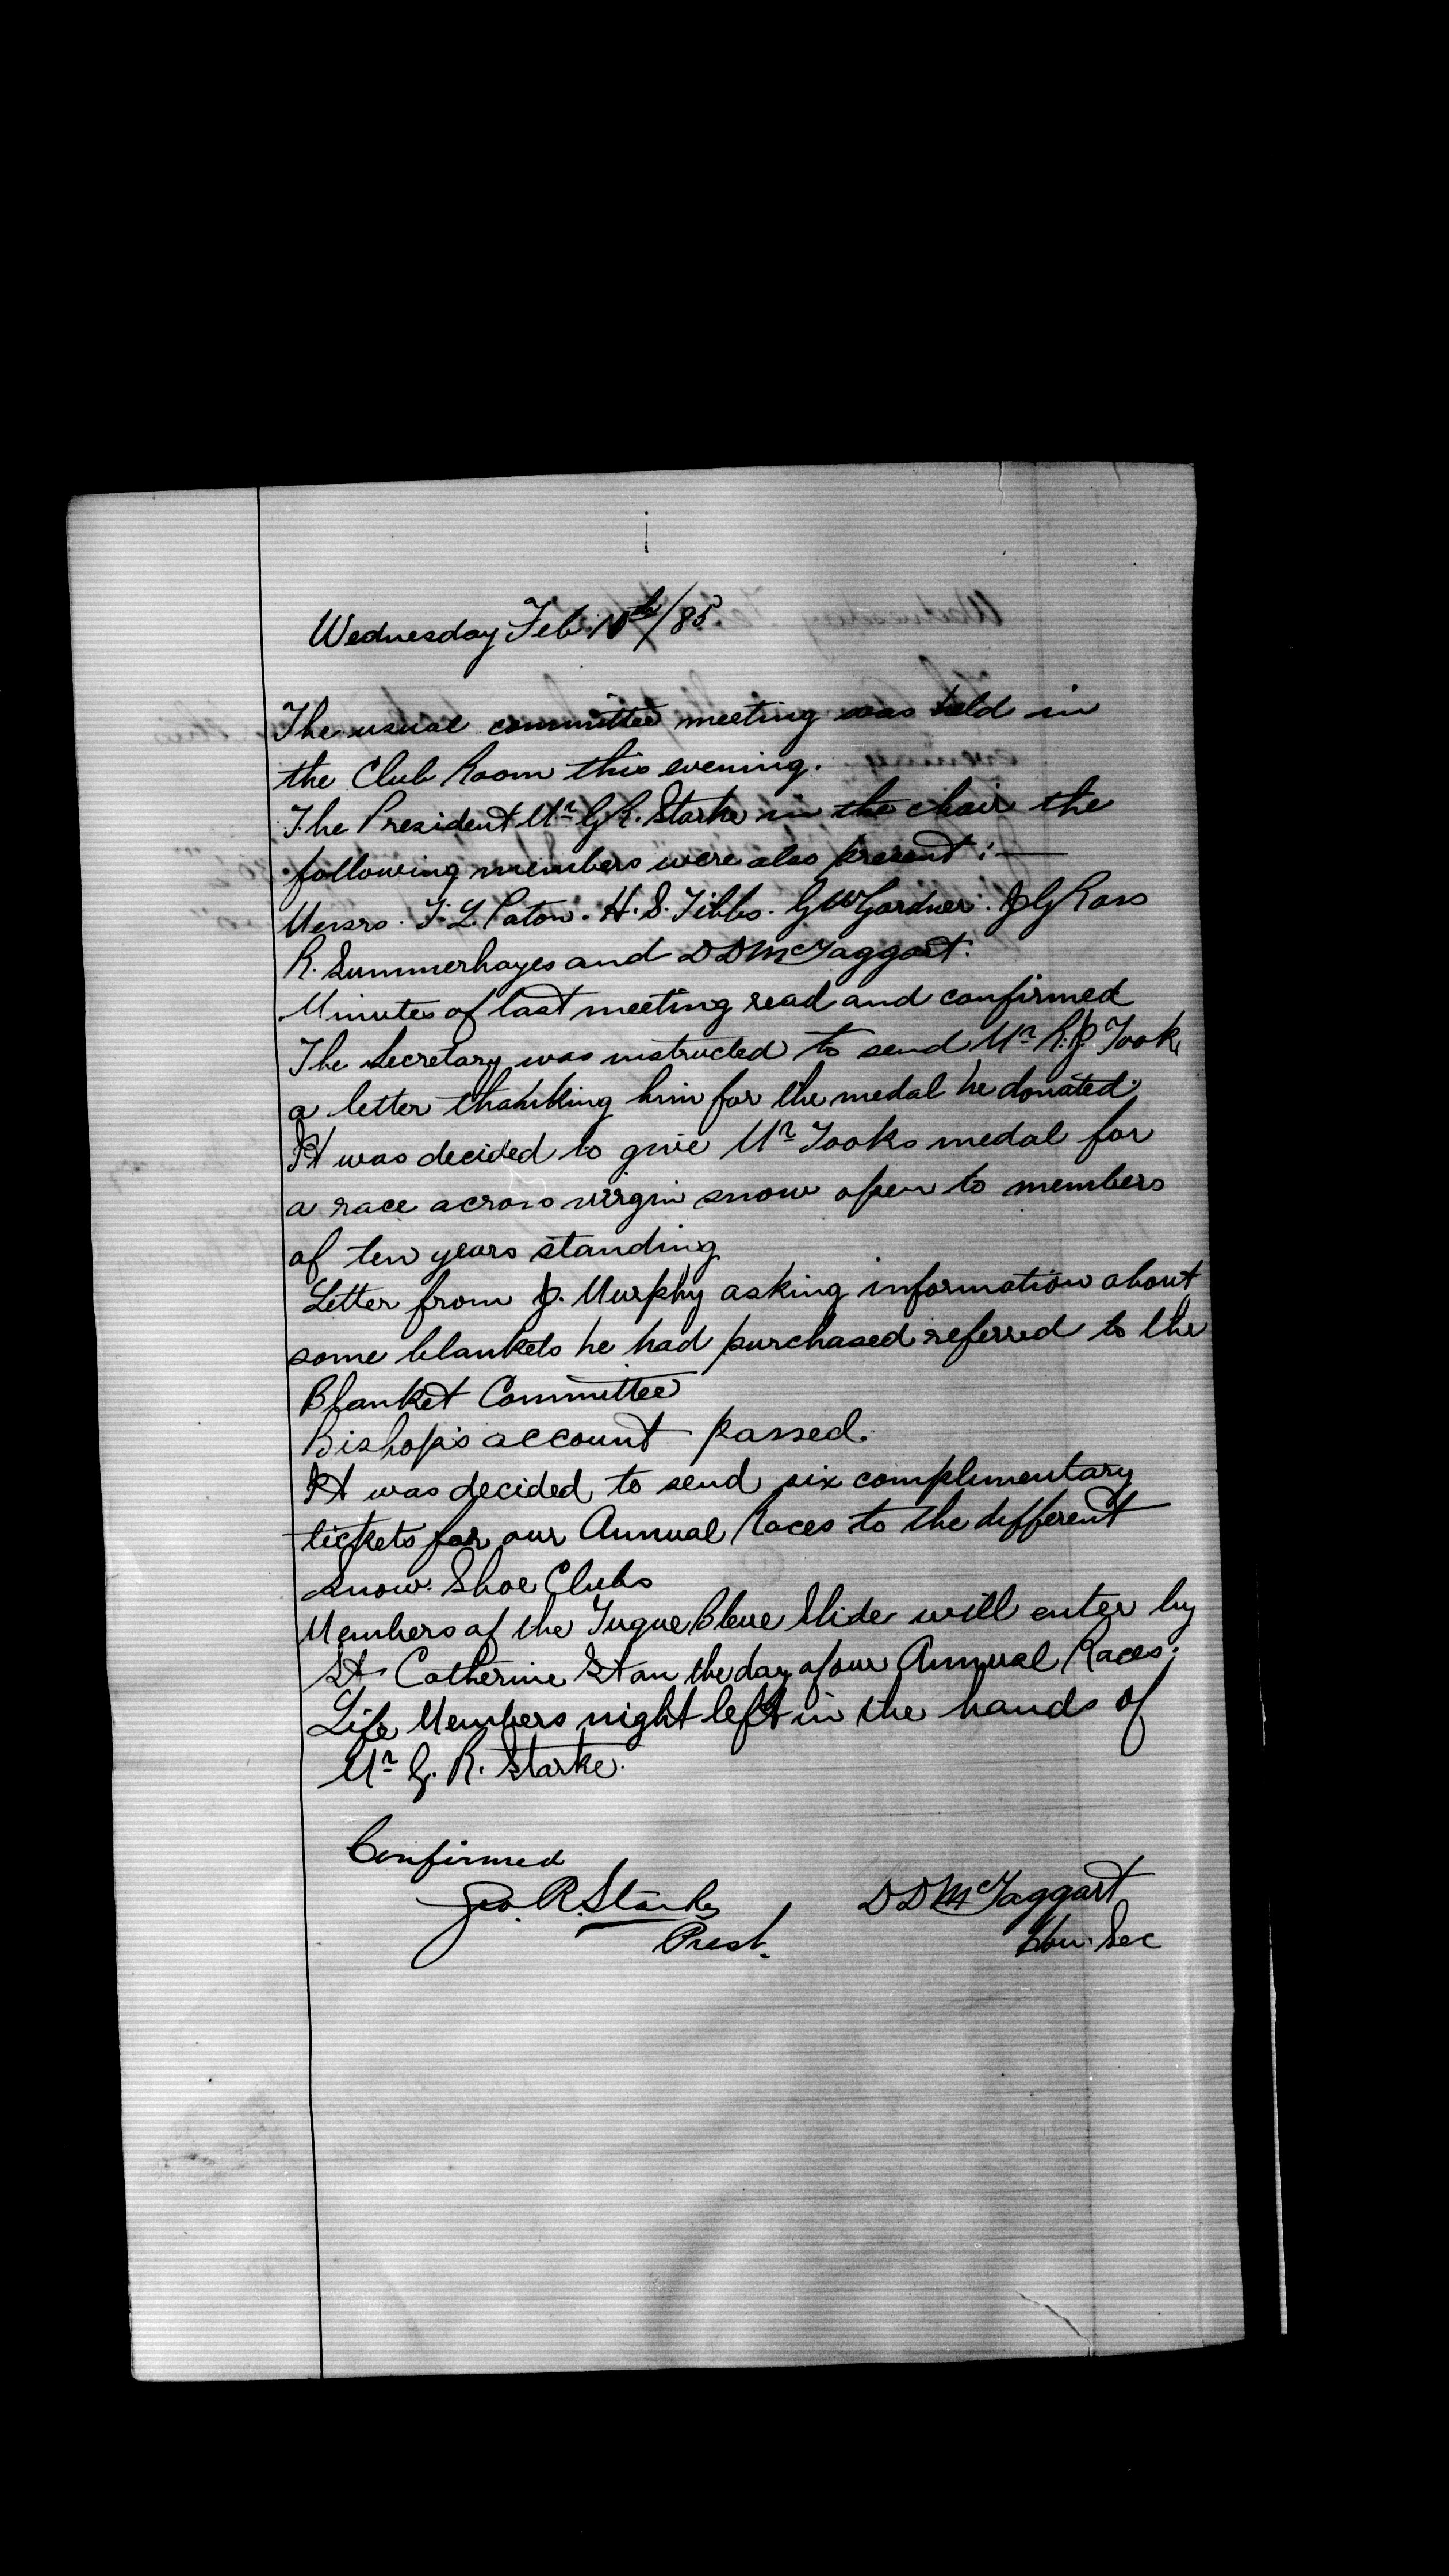 Wednesday Feb. 18th/85.
The usual committee meeting was held in
the Club Room this evening.
The President Mr G.R. Starke in the chair the
following members were also present :—
Messrs. T. L. Paton. H. S. Tibbs. G W Gardner. J G Ross
R. Summerhayes and D D McTaggart.
Minutes of last meeting read and confirmed
The Secretary was instructed to send Mr R. J. Took
a letter thanking him for the medal he donated.
It was decided to give Mr Tooks medal for
a race across virgin snow open to members
of ten years standing
Letter from J. Murphy asking information about
some blankets he had purchased referred to the
Blanket Committee
Bishop's account passed.
It was decided to send six complimentary
tickets for our Annual Races to the different
Snow Shoe Clubs
Members of the Tuque Bleue Slide will enter by
St Catherine St on the day of our Annual Races.
Life Members night left in the hands of
Mr G. R. Starke.
Confirmed
Geo. R. Starke
Prest.
D D McTaggart
Hon. Sec